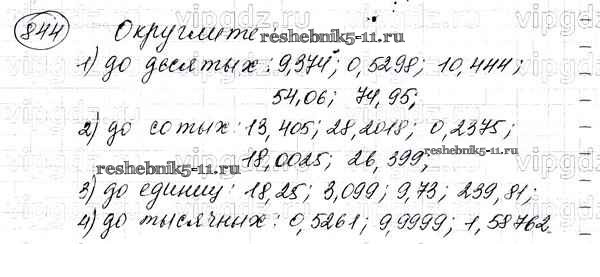 844 Округлите:
reshebnik5-11.ru
1) до десятых: 9,374; 0,5298; 10,444;
54,06; 74,95;
2) до сотых: 13,405; 28,2018; 0,2375;
reshebnik5-11.ru
18,0025; 26,399;
reshebnik5-11.ru
3) до единиц: 18,25; 3,099; 9,73; 239,81;
4) до тысячных: 0,5261; 9,9999; 1,58762